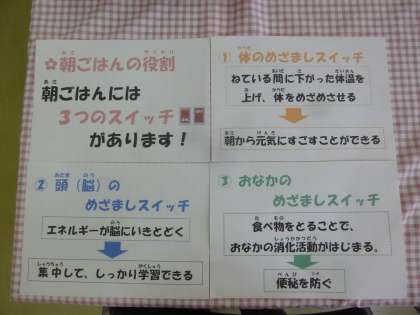 ☆朝ごはんの役割
朝ごはんには
３つのスイッチ
があります！
① 体のめざましスイッチ
ねている間に下がった体温を
上げ、体をめざめさせる
朝から元気にすごすことができる
② 頭（脳）の
めざましスイッチ
エネルギーが脳にいきとどく
集中して、しっかり学習できる
③ おなかの
めざましスイッチ
食べ物をとることで、
おなかの消化活動がはじまる。
便秘を防ぐ